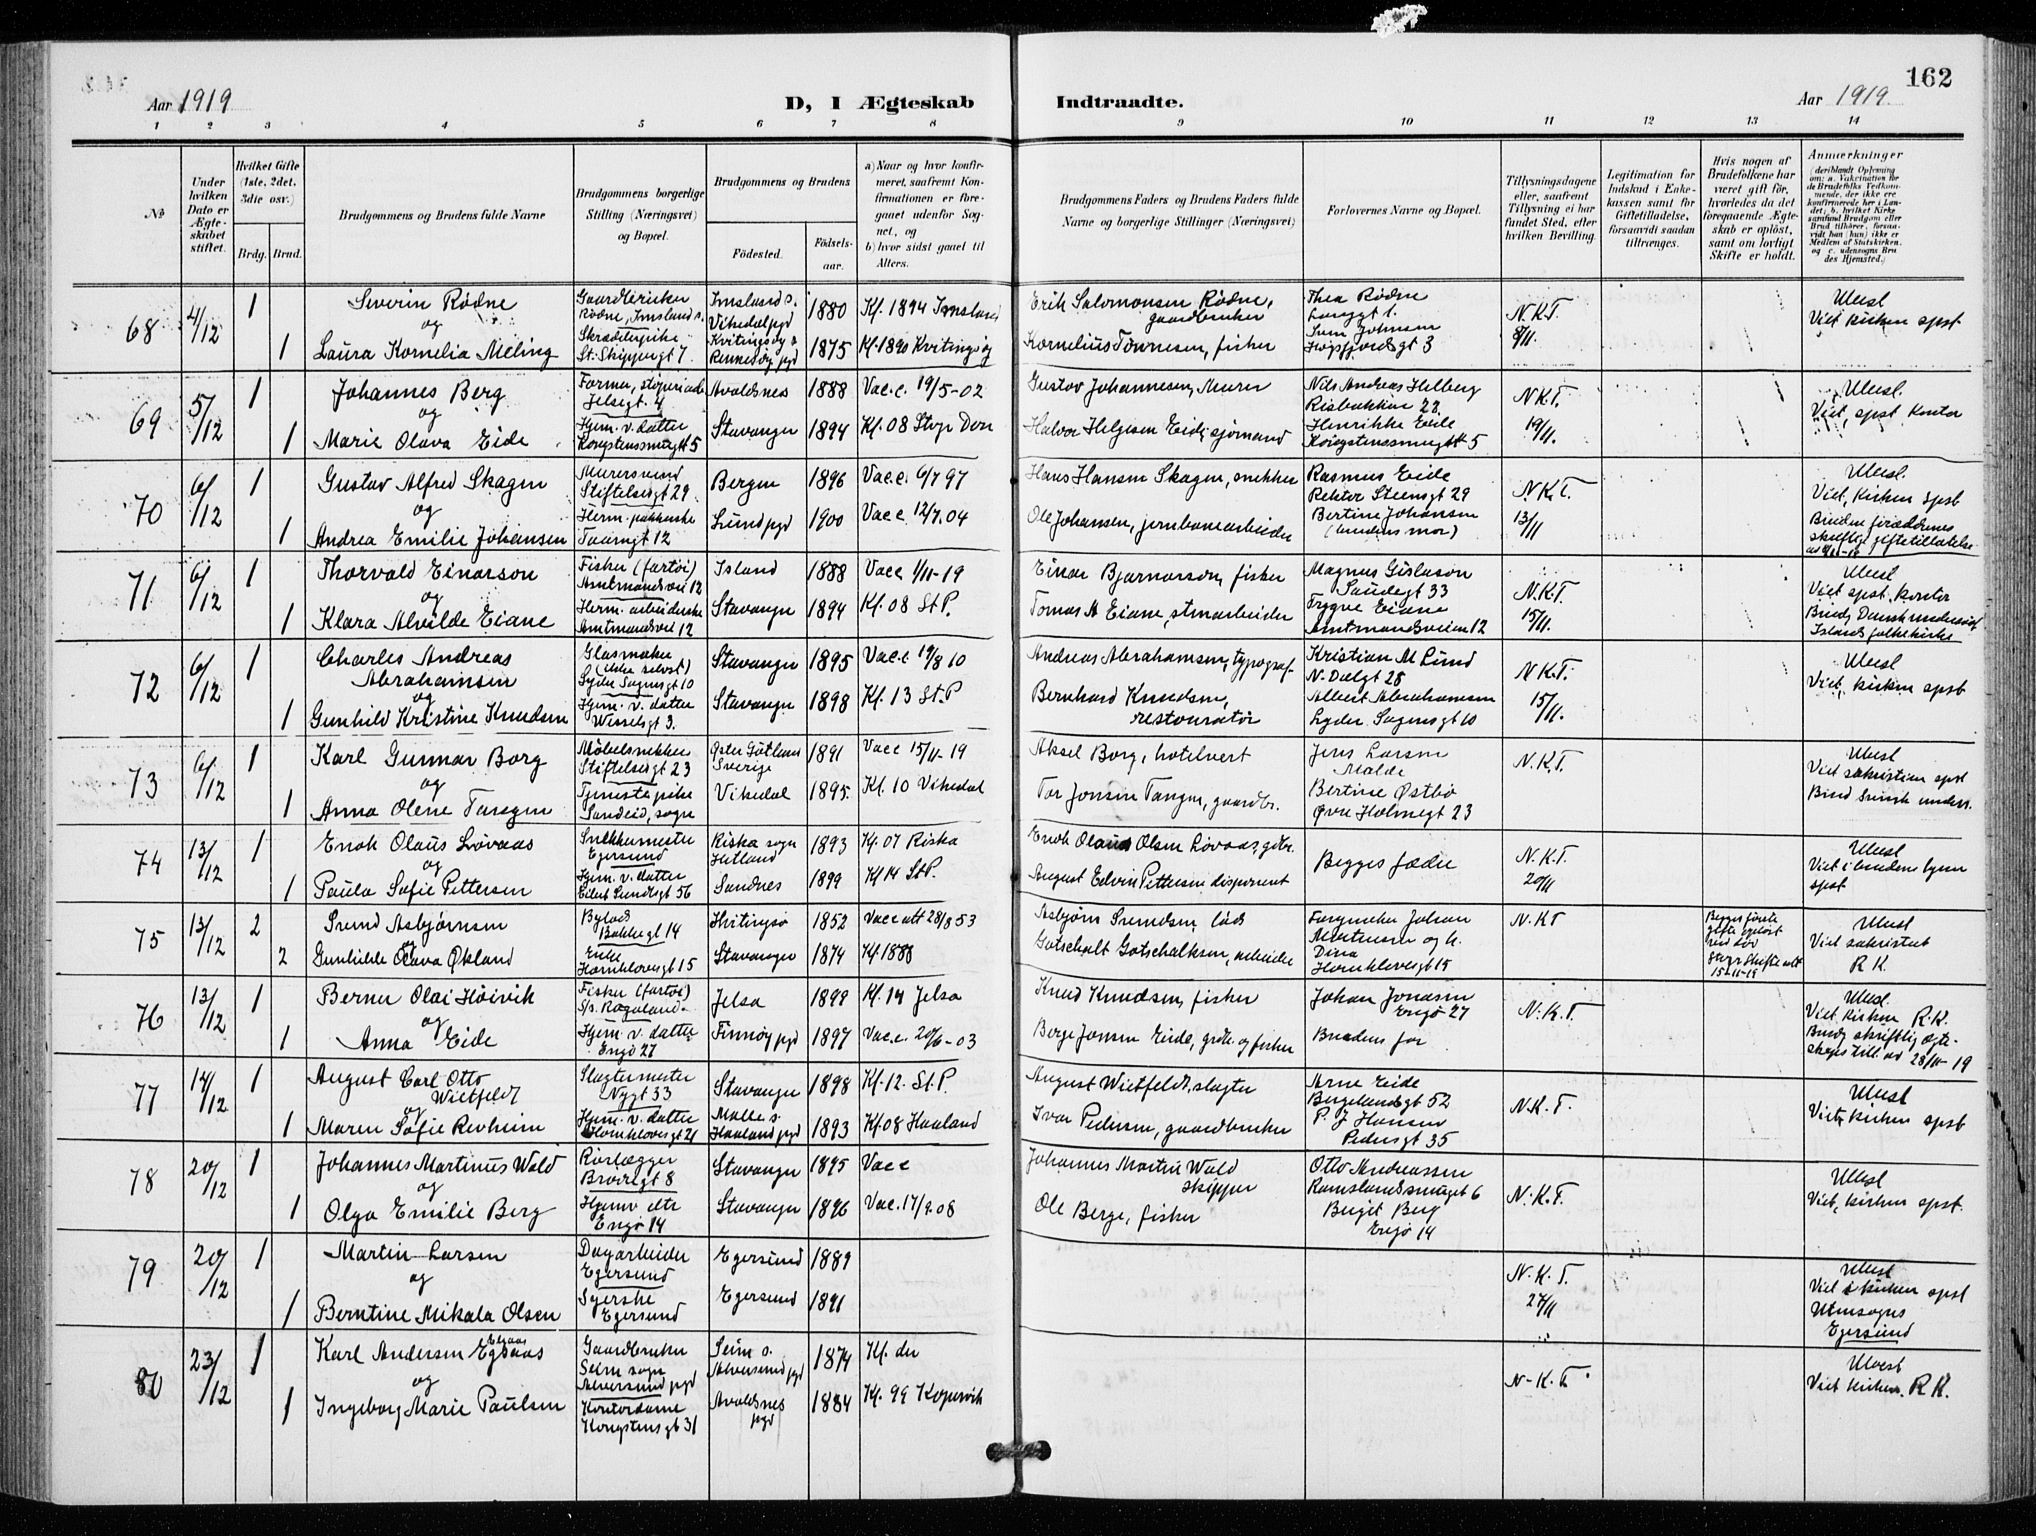 162
Aar 1919
D, I Ægteskab
Indtraadte.
Aar 1919.
1 2 3 4 5 6 7 8 9 10 11 12 13 14
No
Under hvilken Dato er Ægteskabet stiftet.
Hvilket Gifte (1ste, 2det, 3die osv.)
Brdg. Brud.
Brudgommens og Brudens fulde Navne
Brudgommens borgerlige Stilling (Næringsvei) og Bopæl.
Brudgommens og Brudens
Fødested.
Fødselsaar.
a) Naar og hvor konfirmeret, saafremt Konfirmationen er foregaaet udenfor Sognet, og
b) hvor sidst gaaet til Alters.
Brudgommens Faders og Brudens Faders fulde Navne og borgerlige Stillinger (Næringsvei)
Forlovernes Navne og Bopæl.
Tillysningsdagene eller, saafremt Tillysning ei har fundet Sted, efter hvilken Bevilling.
Legitimation for Indskud i Enkekassen samt for Giftetilladelse, forsaavidt saadan tiltrænges.
Hvis nogen af Brudefolkene har været gift før, hvorledes da det foregaaende Ægteskab er opløst, samt om lovligt Skifte er holdt.
Anmerkninger
(deriblandt Oplysning om: a. Vakcination for de Brudefolks Vedkommende, der ikke ere konfirmerede her i Landet; b. hvilket Kirkesamfund Brudgom eller Brud tilhører, forsaavidt han (hun) ikke er Medlem af Statskirken, og c. udensogns Brudes Hjemsted.)
68 4/12 1 Severin Rødne Gaardbruker Imsland s. 1880 Kf. 1894 Imsland Erik Salomonsen Rødne, Thea Rødne N.K.T. Ubesl
og Rødne, Imsland s. Vikedal pgd gaardbruker Viet kirken spst
1 Laura Kornelia Meling St. Skippergt 7 Rennesøy pgd 1875 Kf. 1890 Kvitingsøy Kornelius Tønnesen, fisker Høgsfjordsgt 3 8/11.
69 5/12 1 Johannes Berg Jelsegt. 4 Avaldsnes 1888 Vac.c. 19/5-02 Gustav Johannesen, Murer Nils Andreas Helberg N.K.T. Ubesl.
og Hjem. v. datter Risbakken 22. Viet, spst kontor
1 Marie Olava Eide Kongstensmugt 5 Stavanger 1894 Kf. 08 Halvor Helgesen Eide, sjømand Henrikke Eide 19/11.
70 6/12 1 Gustav Alfred Skagen Murersvend Bergen 1896 Vac.c. 6/7 97 Hans Hansen Skagen, snekker Rasmus Eide N.K.T. Ubesl.
og Stiftelsesgt 29 Rektor Steensgt 29 Viet, Kirken spst
1 Andrea Emilie Johansen Taarngt 12 Lund pgd 1900 Vacc. 12/7.04 Ole Johansen, jernbanearbeider Bertine Johansen 13/11
(brudens mor)
71 6/12 1 Thorvald Einarson Fisker (fartøi) Island 1888 Vacc 1/11-19 Einar Bjarnarson, fisker Magnus Gislason N.K.T. Ubesl
og Amtmandsvei 12 Sandegt 33 Viet spst. kontor
1 Klara Alvilde Eiane Herm. arbeiderske Stavanger 1894 Kf. 08 St.P. Tomas A Eiane, stenarbeider Trygve Eiane 15/11.
Amtmandsvei 12 Amtmandsveien 12 Islands folkekirke
72 6/12 1 Charles Andreas Glasmaker Stavanger 1895 Vac.c 19/8 10 Andreas Abrahamsen, typograf. Kristian M Lund N.K.T. Ubesl
Abrahamsen (ikke selvst) N. Dalgt 28 Viet, kirken spst
og Lyder Sagensgt 10 Albert Abrahamsen 15/11.
1 Gunhild Kristine Knudsen Hjem. v. datter Stavanger 1898 Kf. 13 St.P Bernhard Knudsen, restouratør Lyder Sagensgt 10
Wesselsgt 3.
73 6/12 1 Karl Gunnar Borg Møbelsnekker Øster Götland 1891 Vacc 15/11-19 Aksel Borg, hotelvert Jens Larsen N.K.T. Ubesl
og Stiftelsesgt 23 Sverige Malde Viet sakristien spst
1 Anna Olene Tangen Tjenestepike Vikedal 1895. Kf. 10 Vikedal Tor Jonsen Tangen, gaardbr. Bertine Østbø
Sandeid, sogn Øvre Holmegt 23
74 13/12 1 Enok Olaus Lovaas Snekkermester Riska sogn 1893 Kf. 07 Riska Enok Olaus Olsen Lovaas, gbr. Begges fædre N.K.T. Ubesl
og Egersund Hetland Viet i brudens hjem
1 Paula Sofie Pettersen Hjem. v. datter Sandnes 1899 Kf 14 St.P. August Edvin Pettersen disponent 20/11 spst
75 13/12 2 Svend Asbjørnsen Bylods Hvitingsø 1852 Vacc att 28/8 53 Asbjørn Svendsen, lods Johan N.K.T Ubesl
Bakkegt 14 Martinsen og h. Viet sakristiet
2 Gunhilde Olava Økland Enke Stavanger 1874 Kf. 1888 Gotschalk Gotschalksen, arbeider Dina R K.
Hornklovesgt 15 Hornklovesgt 15 15-11-19
76 13/12 1 Berner Olai Høivik Fisker (fartøi) Jelsa 1899 Kf. 14 Jelsa Knud Knudsen, fisker Johan Jonasen N.K.T. Ubesl.
og S/s. Rogaland. Engø 27 Viet. kirken R.K.
1 Anna Eide Hjem. v. datter Finnøy pgd 1897 Vac.c. 20/6-03 Berge Jonsen Eide, grdb. og fisker Brudens far
Engø 27 28/11-19
77 14/12 1 August Carl Otto Wietfeldt Slagtermester Stavanger 1898 Kf. 12. St.P. August Wietfeldt, slagter Arne Eide N.K.T. Ubesl
og Nygt 33 Bergelandsgt 52 Viet, kirken spst
1 Maren Sofie Revheim Hjem. v. datter Malle s. 1893 Kf. 08 Haaland Ivar Pedersen, gaardbruker P. J Hansen
Hornklovesgt 21 Haaland pgd Pedersgt 35
78 20/12 1 Johannes Martinus Wold Rørlægger Stavanger 1895 Vacc Johannes Martin Wold Otto Andreassen N.K.T. Ubesl
og Brovigt 8 skipper Ramslandsmuget 6 Viet, kirken spst.
1 Olga Emilie Berg Hjemv dtr Stavanger 1896 Vac. 17/9.08 Ole Berge, fisker Berget Berg
Engø 14 Engø 14
79 20/12 1 Martin Larsen Dagarbeider Egersund 1889 N.K.T. Ubesl
og Egersund 27/11 Viet i kirken spst
1 Berntine Mikala Olsen Syerske Egersund 1891 Utensogns
Egersund Egersund
80 23/12 1 Karl Andersen Gaardbruker Seim s. 1874 Kf. der N-K.T. Ubesl
og Seim sogn Alversund pgd Viet kirken. R.K.
Alversund pgd
1 Ingeborg Marie Paulsen Kontordame Avaldsnes pgd 1884 Kf. 99 Kopervik
Kongstensgt 31